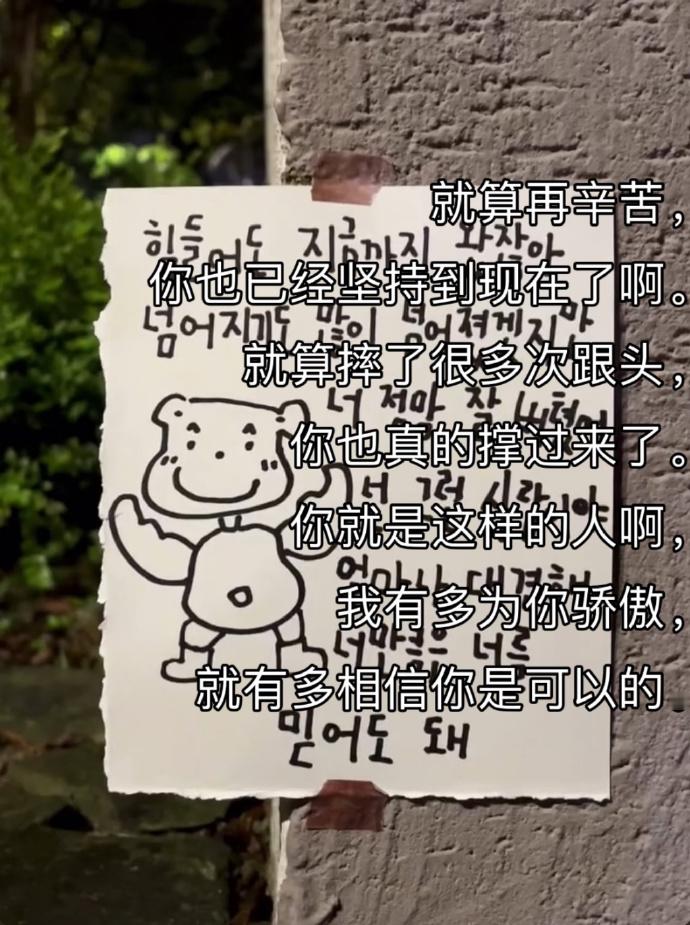 就算再辛苦，
힘들어도 지금까지 왔잖아
你也已经坚持到现在了啊。
넘어지기도 많이 넘어졌겠지만
就算摔了很多次跟头，
너 정말 잘
你也真的撑过来了。
너 그런 사람이야
你就是这样的人啊，
얼마나 대견해
我有多为你骄傲，
너만큼은 너를
就有多相信你是可以的
믿어도 돼